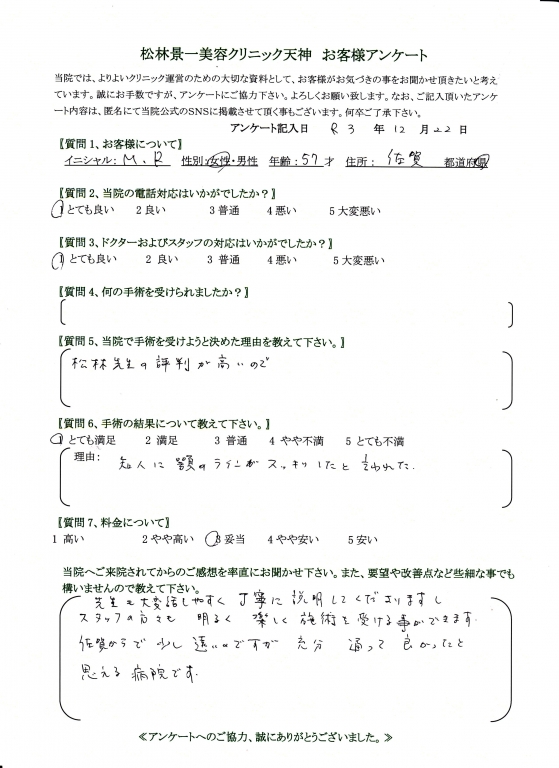 松林景一美容クリニック天神 お客様アンケート
当院では、よりよいクリニック運営のための大切な資料として、お客様がお気づきの事をお聞かせ頂きたいと考え
ています。誠にお手数ですが、アンケートにご協力下さい。よろしくお願い致します。なお、ご記入頂いたアンケ
ート内容は、匿名にて当院公式のSNSに掲載させて頂く事もございます。何卒ご了承下さい。
アンケート記入日 R3 年 12 月 22 日
【質問1、お客様について】
イニシャル: M.R 性別:女性・男性 年齢:57才 住所: 佐賀 都道府県
【質問2、当院の電話対応はいかがでしたか?】
1 とても良い 2 良い 3 普通 4 悪い 5 大変悪い
【質問3、ドクターおよびスタッフの対応はいかがでしたか?】
1 とても良い 2 良い 3 普通 4 悪い 5 大変悪い
【質問4、何の手術を受けられましたか?】
【質問5、当院で手術を受けようと決めた理由を教えて下さい。】
松林先生の評判が高いので
【質問6、手術の結果について教えて下さい。】
1 とても満足 2 満足 3 普通 4 やや不満 5 とても不満
理由: 知人に顎のラインがスッキリしたと言われた.
【質問7、料金について】
1 高い 2 やや高い 3 妥当 4 やや安い 5 安い
当院へご来院されてからのご感想を率直にお聞かせ下さい。また、要望や改善点など些細な事でも
構いませんので教えて下さい。
先生も大変話しやすく丁寧に説明してくださりますし
スタッフの方々も 明るく 楽しく 施術を受ける事ができます.
佐賀からで 少し 遠いのですが 充分 通って 良かったと
思える 病院です.
≪アンケートへのご協力、誠にありがとうございました。≫